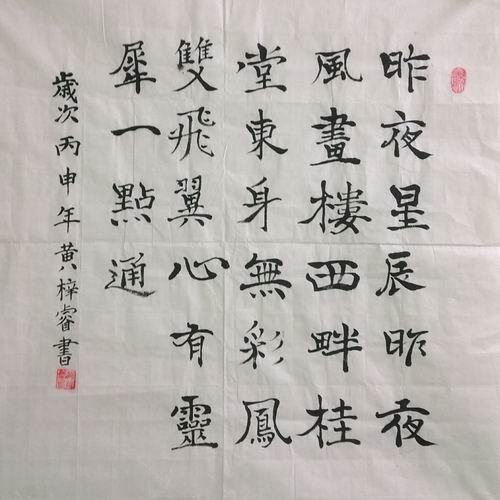 昨夜星辰昨夜
風畫樓西畔桂
堂東身無彩鳳
雙飛翼心有靈
犀一點通
歲次丙申年黃梓睿書